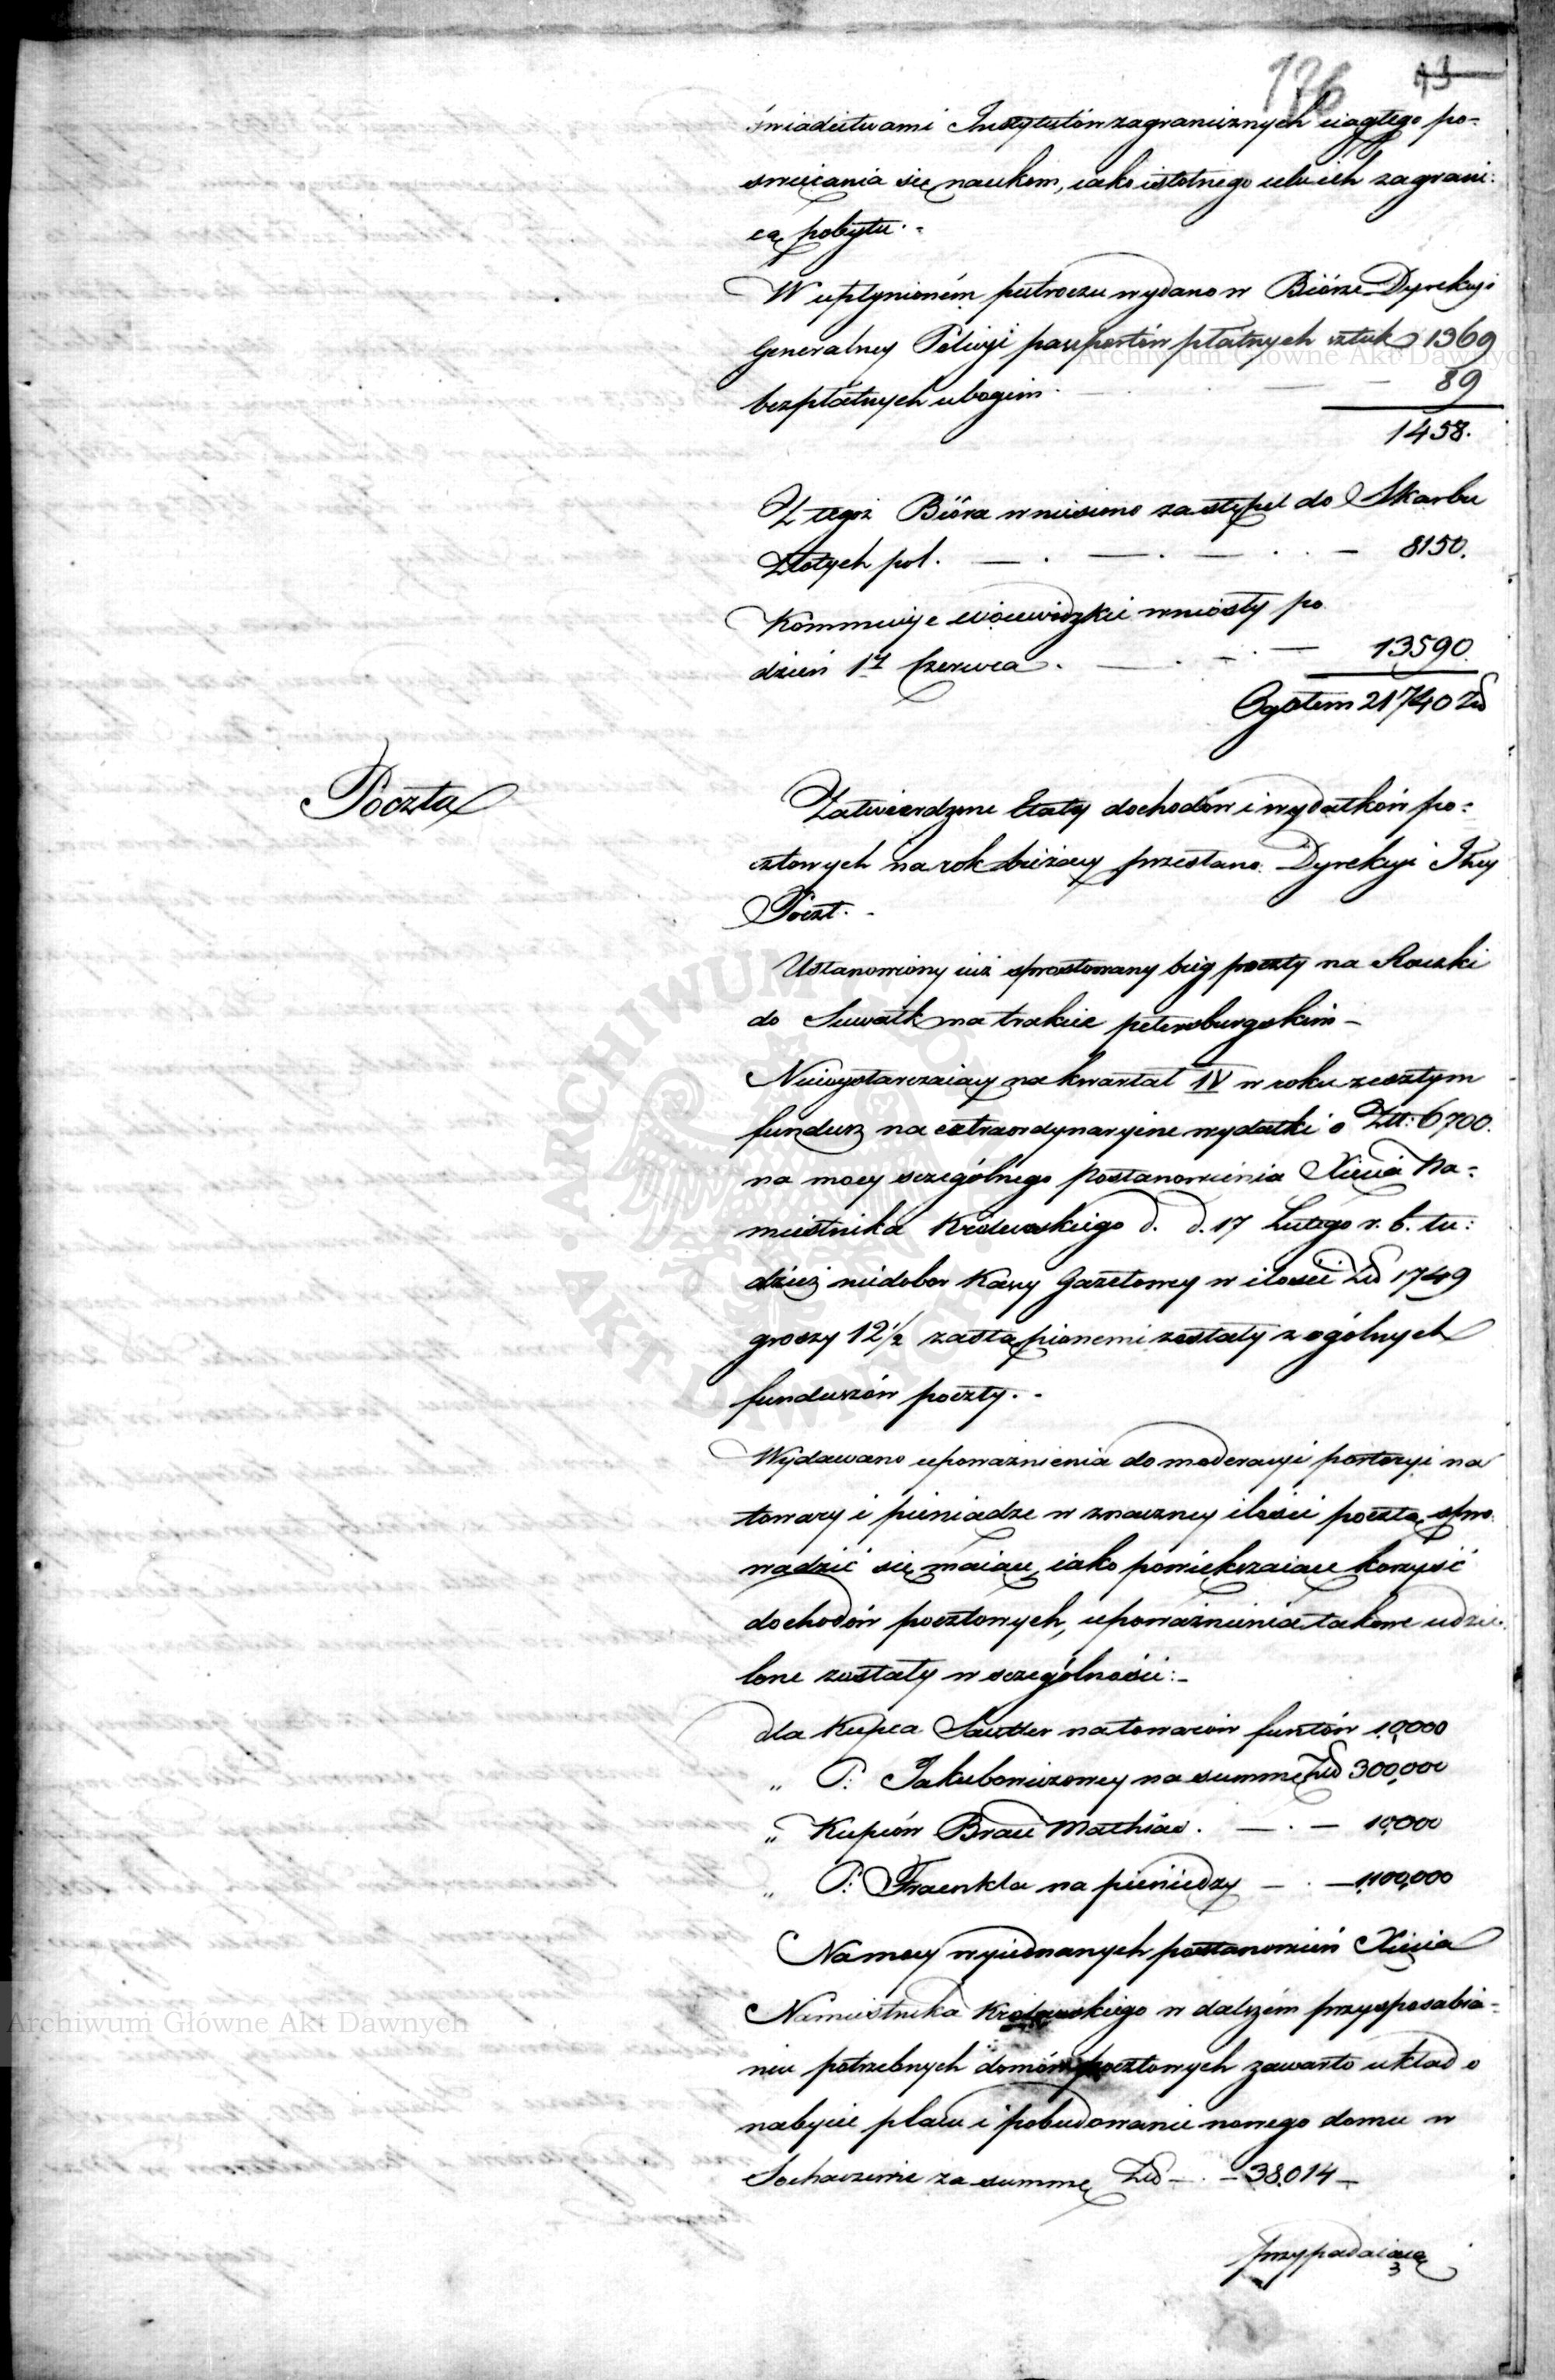 136 43
świadectwami Instytutów zagranicznych ciągłego po-
święcania się naukom, iako istotnego celu ich zagrani-
cą pobytu.
W upłynioném pułroczu wydano w Biórze Dyrekcyi
Generalney Policyi paszportów płatnych sztuk 1369
bezpłatnych ubogim — 89
1458.
Z tegoż Bióra wniesiono za stępel do Skarbu
Złotych pol. — . — . — . . — 8150.
Kommissye woiewódzkie wniosły po
dzień 1y Czerwca . — . — . — 13590.
Ogółem 21740 Złł
Poczta
Zatwierdzone Etaty dochodów i wydatków po-
cztowych na rok bieżący przesłano Dyrekcyi Jlney
Poczt. -
Ustanowiony iuż sprostowany bieg poczty na Raczki
do Suwałk na trakcie petersburgskim —
Niewystarczaiący na kwartał IV w roku zeszłym
fundusz na extraordynaryine wydatki o Złł: 6700.
na mocy szczególnego Postanowienia Xięcia Na-
miestnika Królewskiego d. d. 17 Lutego r. b. tu-
dzież niedobor Kassy Gazetowey w ilości Złł 1749
groszy 12 1/2 zastąpionemi zostały z ogólnych
funduszów poczty. -
Wydawano upoważnienia do moderacyi portoryi na
towary i pieniądze w znaczney ilości pocztą spro-
wadzić się maiące, iako powiększaiące korzyść
dochodów pocztowych, upoważnienia takowe udzie-
lone zostały w szczególności: -
dla Kupca Sautter na towarów funtów 10,000
„ P: Jakubowiczowey na summę Złł 300,000
„ Kupców Braci Mathias . — . — 10,000
„ P: Fraenkla na pieniędzy — . — 1,100,000
Na mocy wyiednanych postanowień Xięcia
Namiestnika Królewskiego w dalszém przysposabia-
niu potrzebnych domów pocztowych zawarto układ o
nabycie placu i pobudowanie nowego domu w
Sochaczewie za summę Złł — . — 38,014 —
przypadaiącą
3
Archiwum Główne Akt Dawnych
Archiwum Główne Akt Dawnych
ARCHIWUM GŁÓWNE AKT DAWNYCH